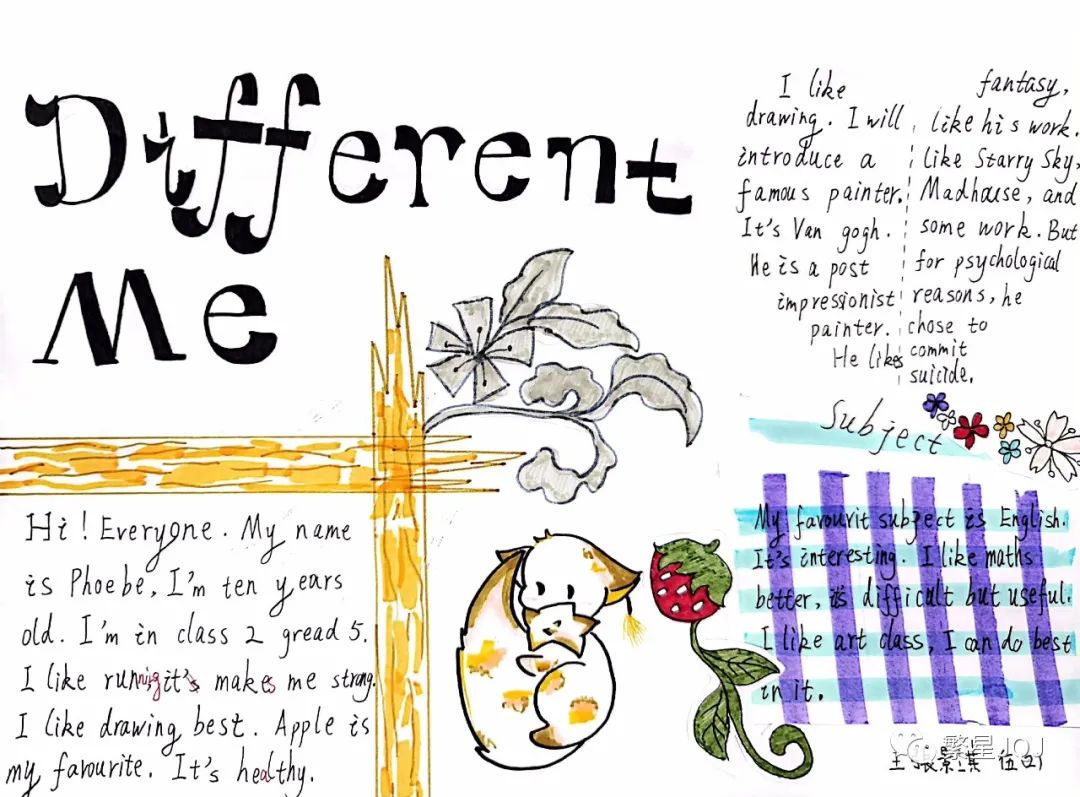 Different
Me
Hi! Everyone. My name
is Phoebe, I'm ten years
old. I'm in class 2 gread 5.
I like runnig,it's makes me strong.
I like drawing best. Apple is
my favourite. It's healthy.
I like
drawing. I will
introduce a
famous painter.
It's Van gogh.
He is a post
impressionist
painter.
He likes
fantasy,
like his work.
like Starry Sky,
Madhause, and
some work. But
for psychological
reasons, he
chose to
commit
suicide.
Subject
My favourit subject is English.
It's interesting. I like maths
better, is difficult but useful.
I like art class, I can do best
in it.
繁星JOJ